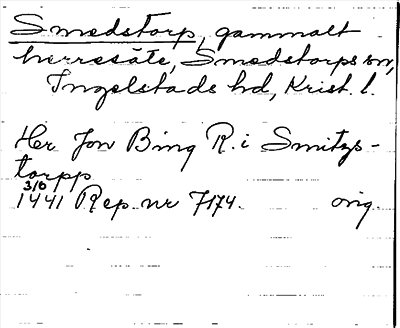 Smedstorp, gammalt
herresäte, Smedstorps sn,
Ingelstads hd, Krist. l.
Her Jon Bing R. i Smitzs-
torpp
3/10
1441 Rep. nr 7174. orig.